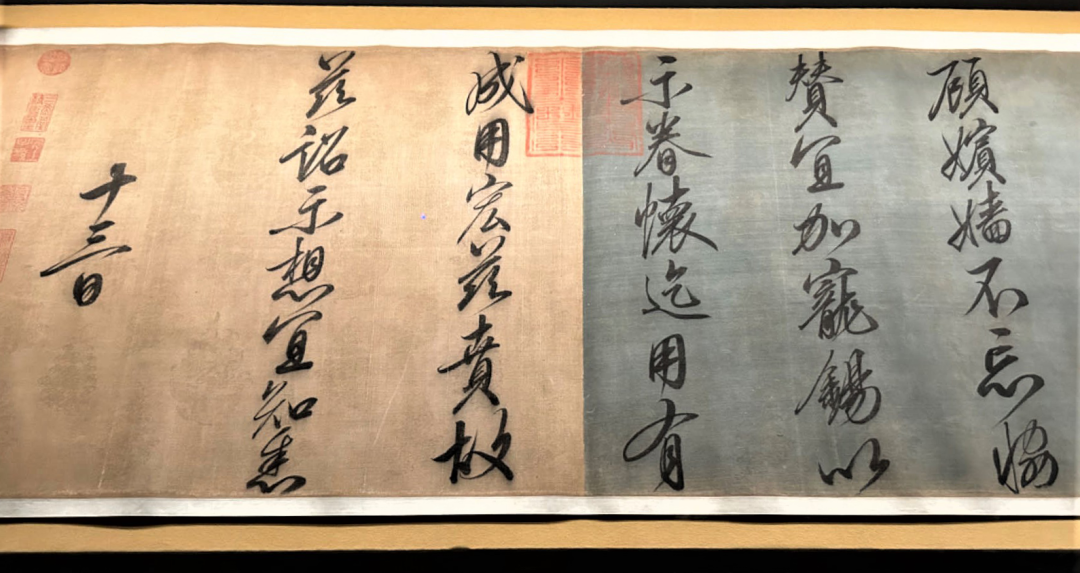 顧嬪嬙不忘協
賛宜加寵錫以
示眷懷迄用有
成用宏茲賁故
茲詔示想宜知悉
十三日